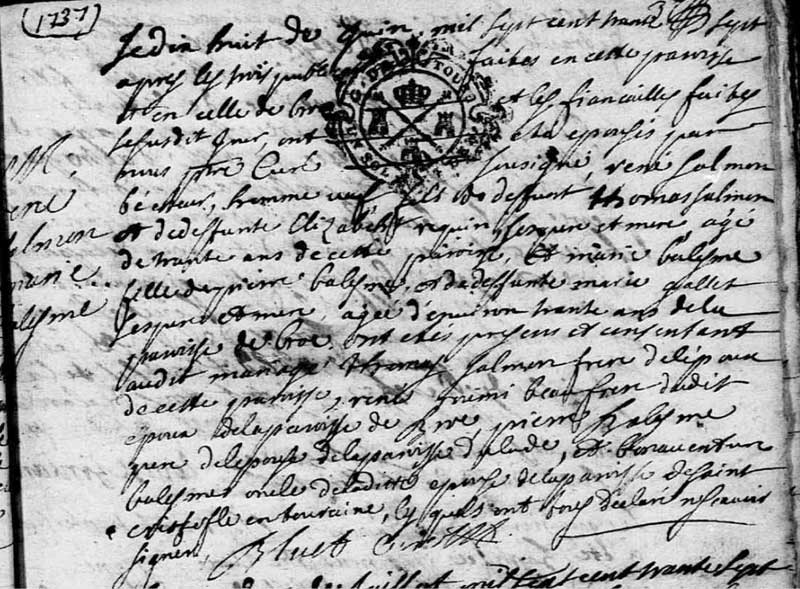 (1737)
Le dix huit de juin mil sept cent trante sept
apres les trois public faites en cette paroisse
et en celle de broc et les fiancailles faites
le susdit jour, ont eté epousés par
nous ptre Curé soussigné, rené salmon
becheur, homme veuf fils de deffunt thomas salmon
et de deffunte Elizabeth requin, ses pere et mere, agé
de trante ans de cette paroisse, Et marie balesme
fille de pierre balesme, et de deffante marie gallet
ses pere et mere, agée d'environ trante ans de la
paroisse de broc ont etés presens et consentant
audit mariage thomas salmon frere de l'epoux
de cette paroisse, rené beaufrere dudit
epoux de la paroisse de pierre balesme
pere de l'epouse de la paroisse et bonaventure
balesme oncle de laditte epouse de la paroisse de saint
cristofle en touraine, lesquels ont tous déclaré ne scavoir
signer,
rené
salmon
marie
balesme
de juillet mil sept cent trante sept